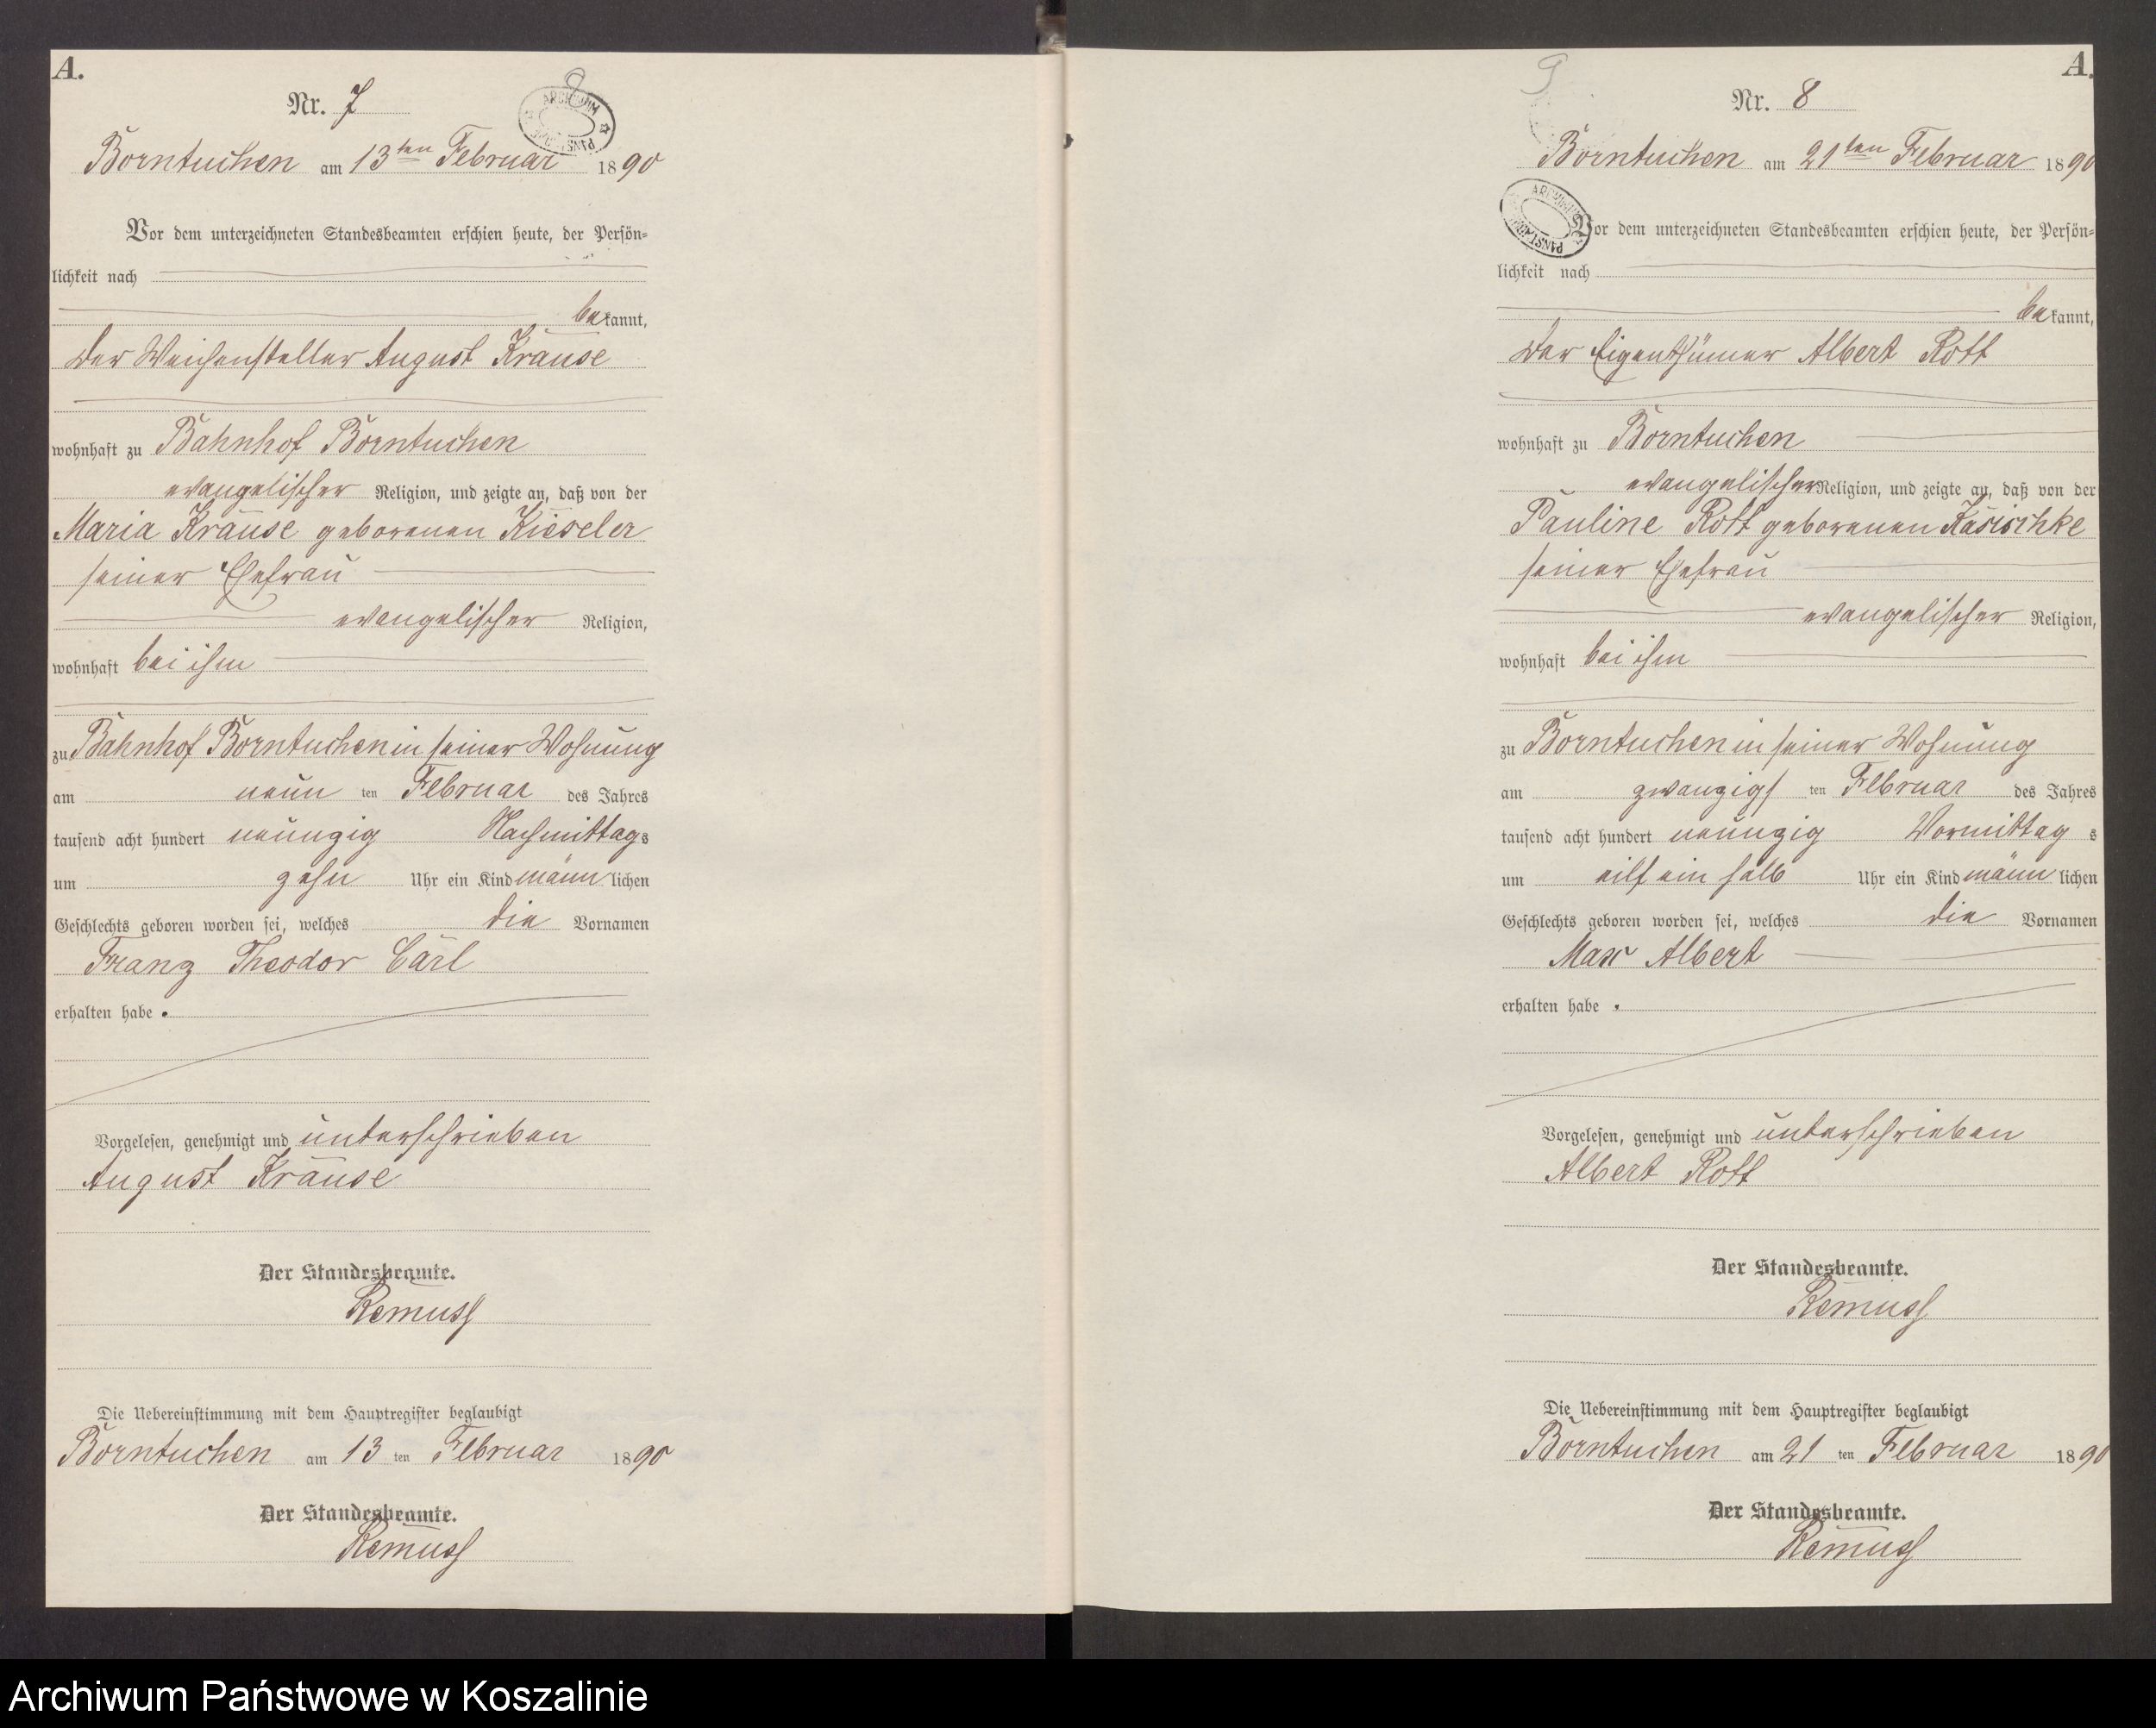 A.
Nr. 7
8
ARCHIWUM
Borntuchen am 13ten Februar 1890
Vor dem unterzeichneten Standesbeamten erschien heute, der Persön-
lichkeit nach
bekannt,
der Weichensteller August Krause
wohnhaft zu Bahnhof Borntuchen
evangelischer Religion, und zeigte an, daß von der
Maria Krause geborenen Kieseler
seiner Ehefrau
evangelischer Religion,
wohnhaft bei ihm
zu Bahnhof Borntuchen in seiner Wohnung
am neun ten Februar des Jahres
tausend acht hundert neunzig Nachmittags
um zehn Uhr ein Kind männlichen
Geschlechts geboren worden sei, welches die Vornamen
Franz Theodor Carl
erhalten habe.
Vorgelesen, genehmigt und unterschrieben
August Krause
Der Standesbeamte.
Remuss
Die Uebereinstimmung mit dem Hauptregister beglaubigt
Borntuchen am 13 ten Februar 1890
Der Standesbeamte.
Remuss
A.
9
Nr. 8
Borntuchen am 21ten Februar 1890
ARCHIWUM
Vor dem unterzeichneten Standesbeamten erschien heute, der Persön-
lichkeit nach
bekannt,
der Eigenthümer Albert Rott
wohnhaft zu Borntuchen
evangelischer Religion, und zeigte an, daß von der
Pauline Rott geborenen Kasischke
seiner Ehefrau
evangelischer Religion,
wohnhaft bei ihm
zu Borntuchen in seiner Wohnung
am zwanzigs ten Februar des Jahres
tausend acht hundert neunzig Vormittag s
um eilf ein halb Uhr ein Kind männlichen
Geschlechts geboren worden sei, welches die Vornamen
Max Albert
erhalten habe.
Vorgelesen, genehmigt und unterschrieben
Albert Rott
Der Standesbeamte.
Remuss
Die Uebereinstimmung mit dem Hauptregister beglaubigt
Borntuchen am 21 ten Februar 1890
Der Standesbeamte.
Remuss
Archiwum Państwowe w Koszalinie